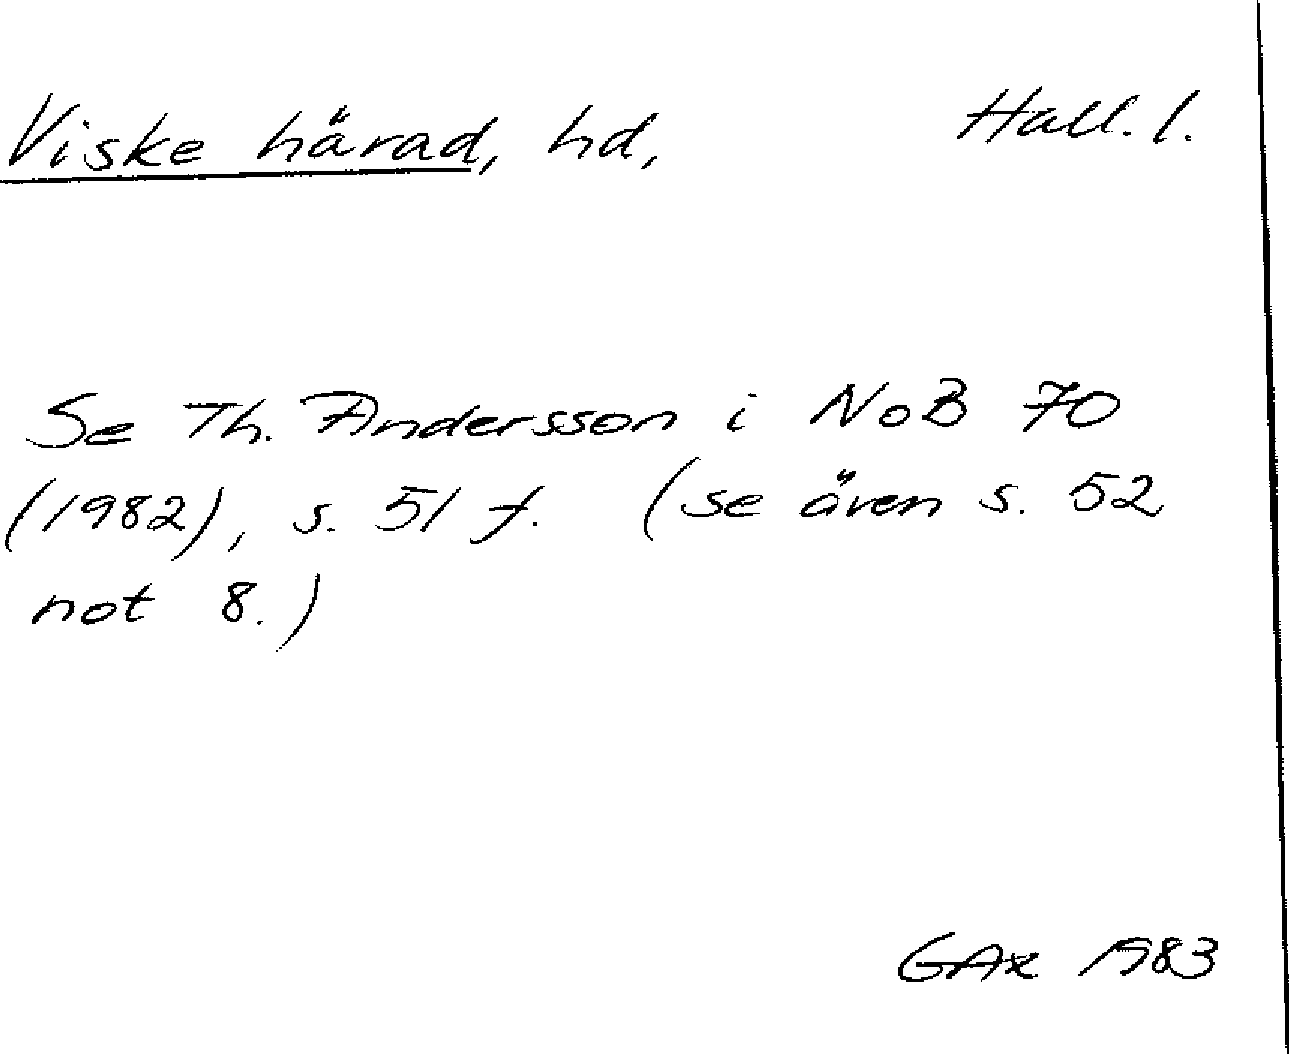 Viske härad, hd, Hall. l.
Se Th. Andersson i NoB 70
(1982), s. 51 f. (se även s. 52
not 8.)
GAx 1983